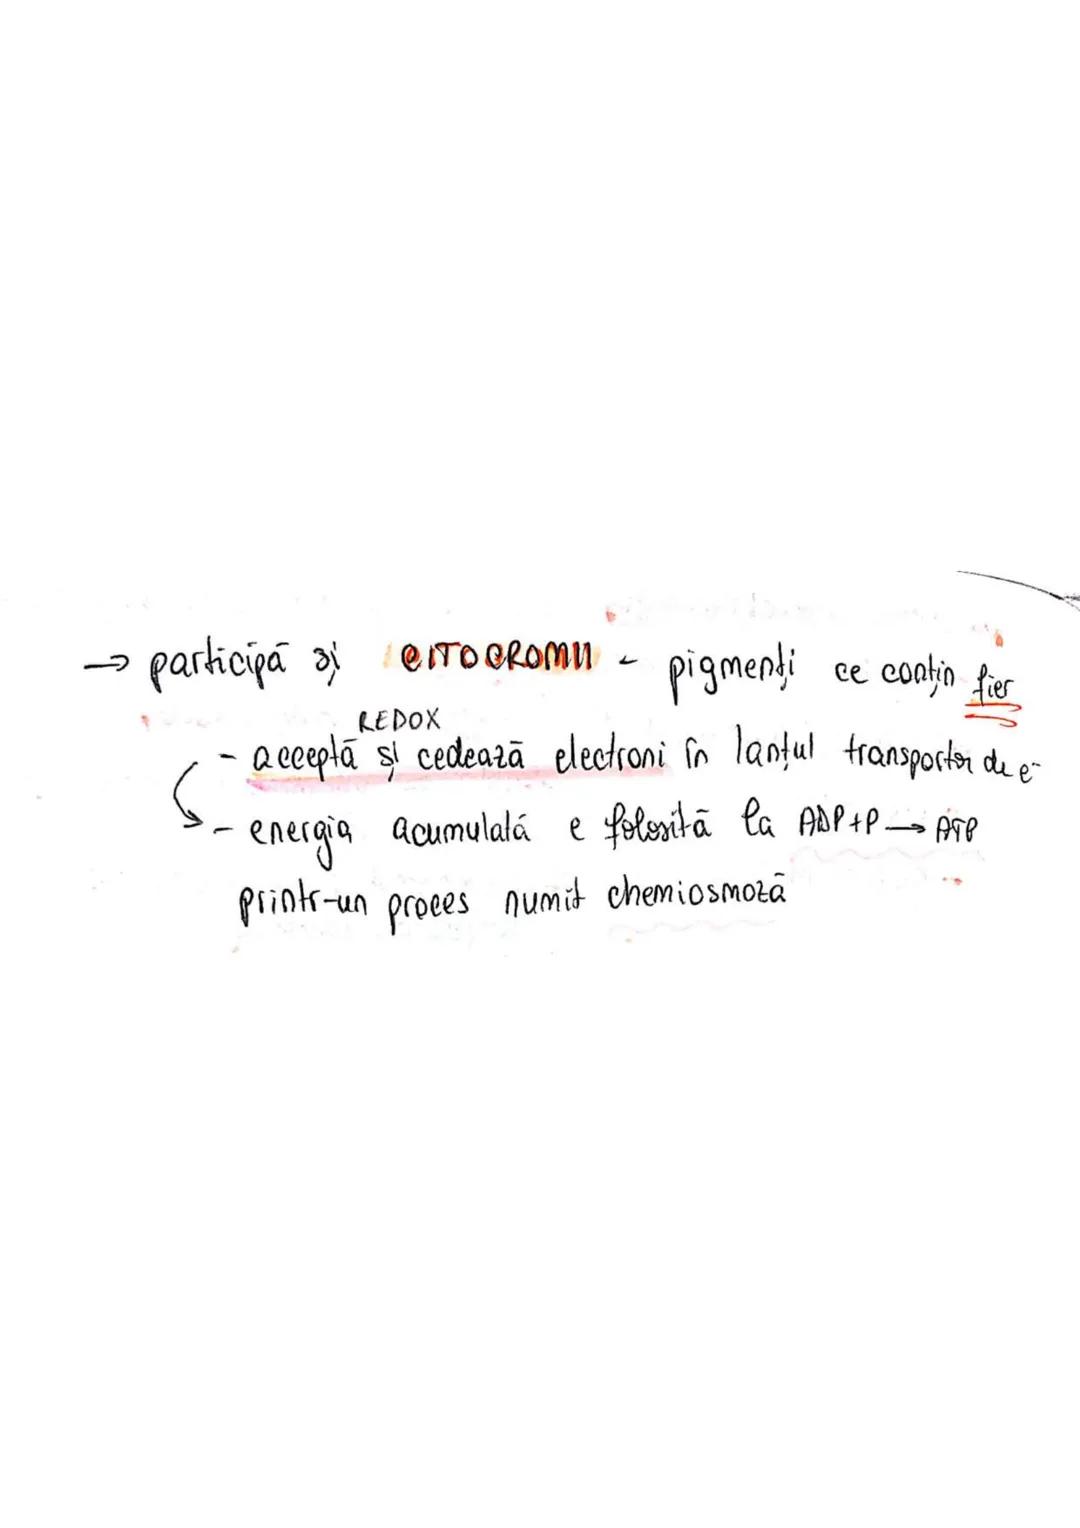 → participă și CITOCROMII - pigmenți ce conțin fier
REDOX
- acceptă și cedează electroni în lanțul transportor de e⁻
- energia acumulată e folosită la ADP+P → ATP
printr-un proces numit chemiosmoză